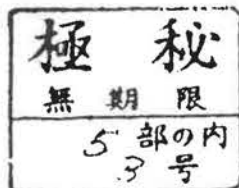 極秘
無期限
5部の内
3号